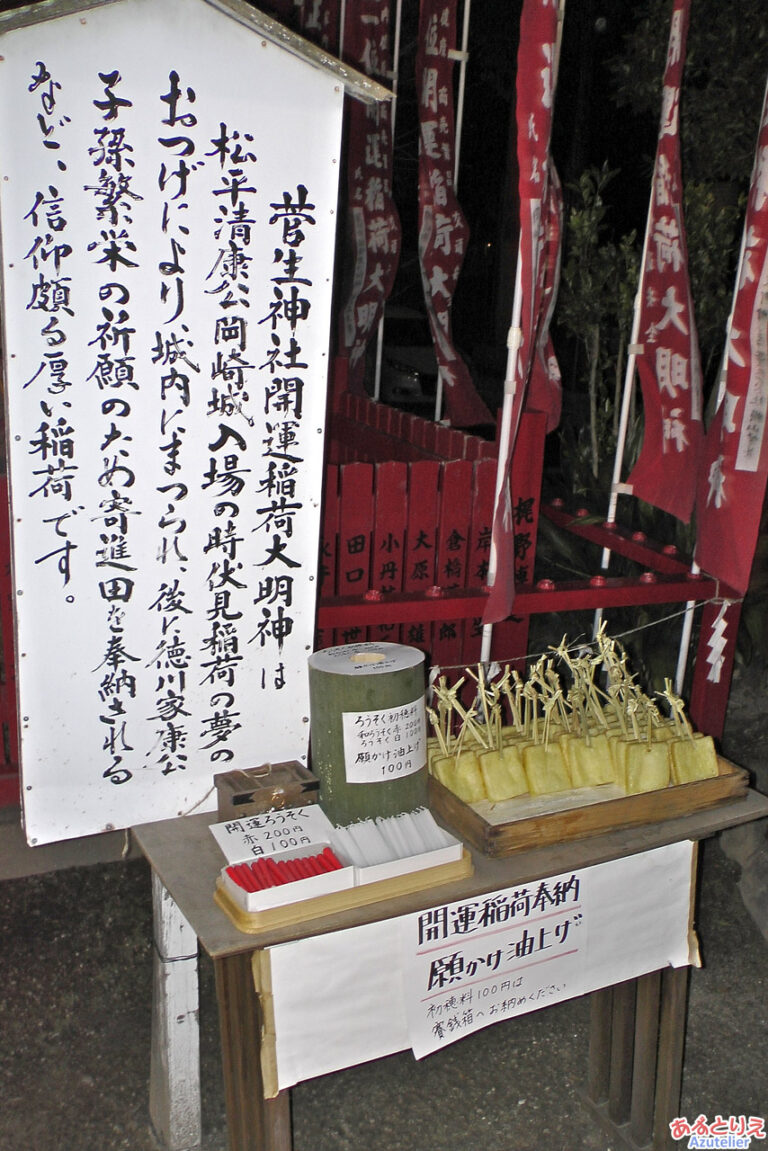 菅生神社開運稲荷大明神は
松平清康公岡崎城入場の時伏見稲荷の夢の
おつげにより城内にまつられ、後に徳川家康公
子孫繁栄の祈願のため寄進田を奉納される
など、信仰頗る厚い稲荷です。
開運稲荷大明神
開運稲荷大明神
稲荷大明神
大明神
田口
小丹
大原
倉橋
岸本
梶野
ろうそく初穂料
和ろうそく赤200円
ろうそく白100円
願かけ油上げ
100円
開運ろうそく
赤200円
白100円
開運稲荷奉納
願かけ油上げ
初穂料100円は
賽銭箱へお納めください
あるとりえ
Azutelier